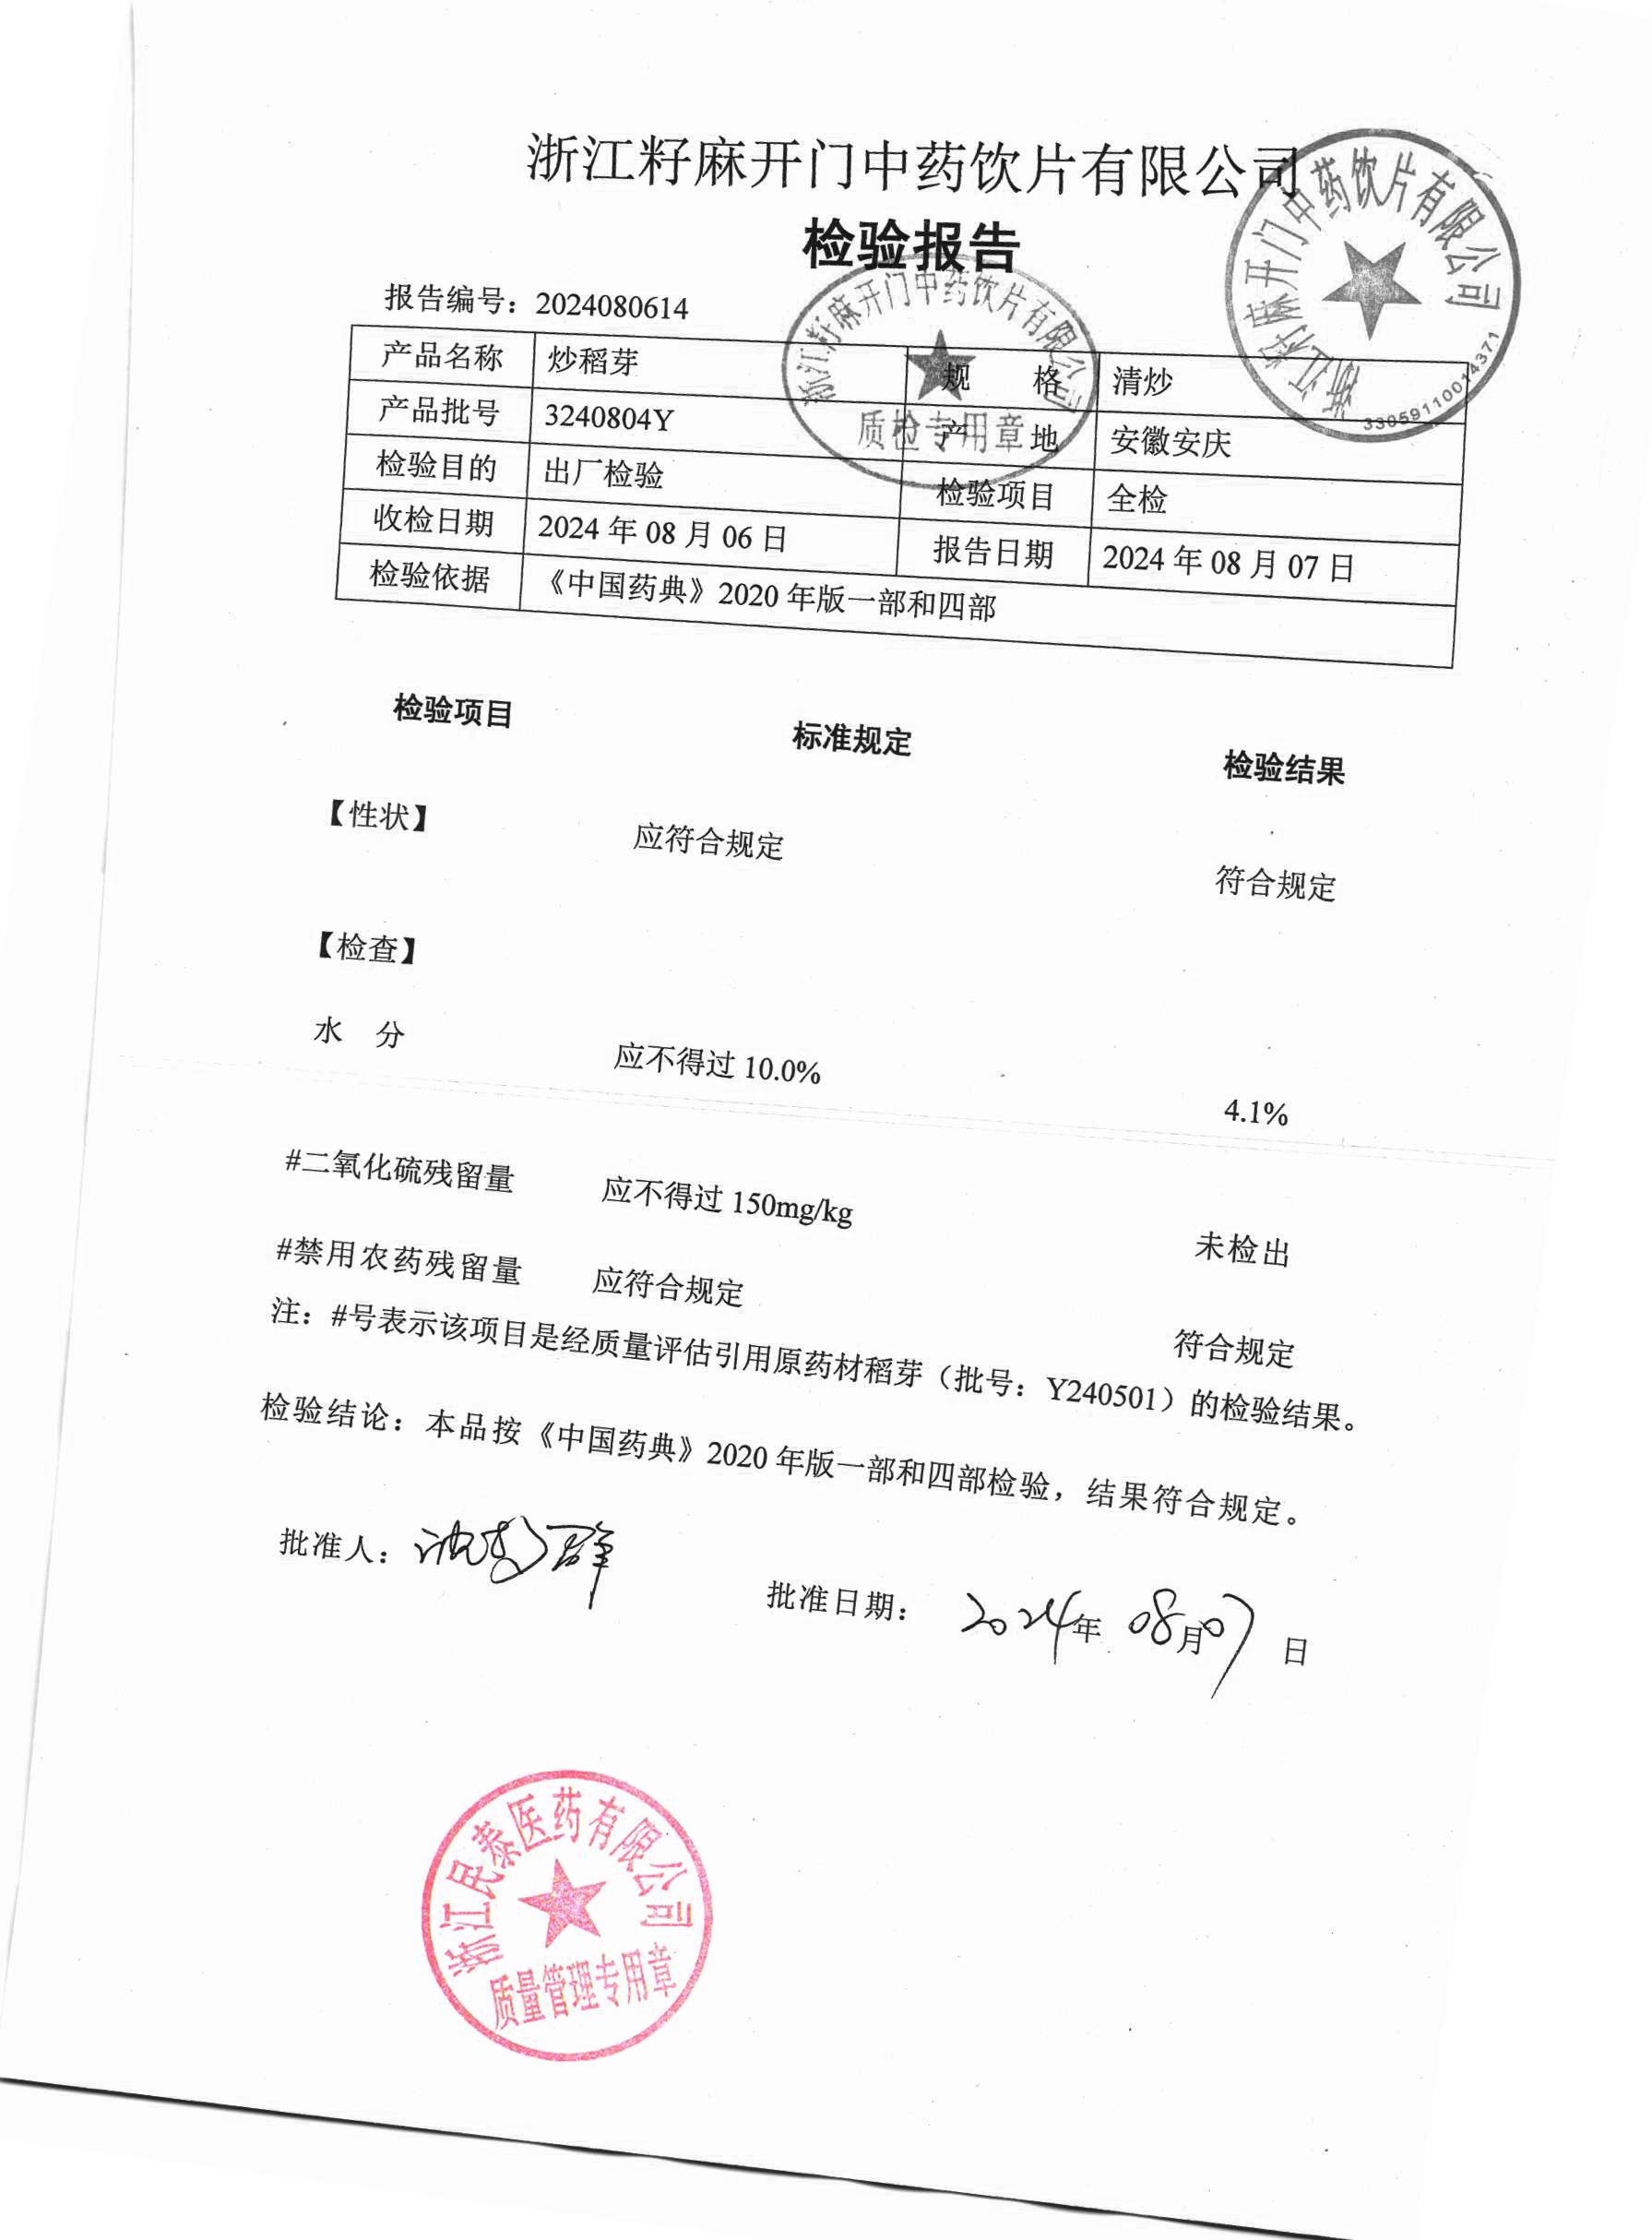 浙江籽麻开门中药饮片有限公司
检验报告
报告编号：2024080614
产品名称 炒稻芽 规 格 清炒
产品批号 3240804Y 产 地 安徽安庆
检验目的 出厂检验 检验项目 全检
收检日期 2024 年 08 月 06 日 报告日期 2024 年 08 月 07 日
检验依据 《中国药典》2020 年版一部和四部
浙江籽麻开门中药饮片有限公司
质检专用章
浙江籽麻开门中药饮片有限公司
33059110014371
检验项目 标准规定 检验结果
【性状】 应符合规定 符合规定
【检查】
水 分 应不得过 10.0% 4.1%
#二氧化硫残留量 应不得过 150mg/kg 未检出
#禁用农药残留量 应符合规定 符合规定
注：#号表示该项目是经质量评估引用原药材稻芽（批号：Y240501）的检验结果。
检验结论：本品按《中国药典》2020 年版一部和四部检验，结果符合规定。
批准人： 批准日期： 2024年 08月07日
浙江民泰医药有限公司
质量管理专用章